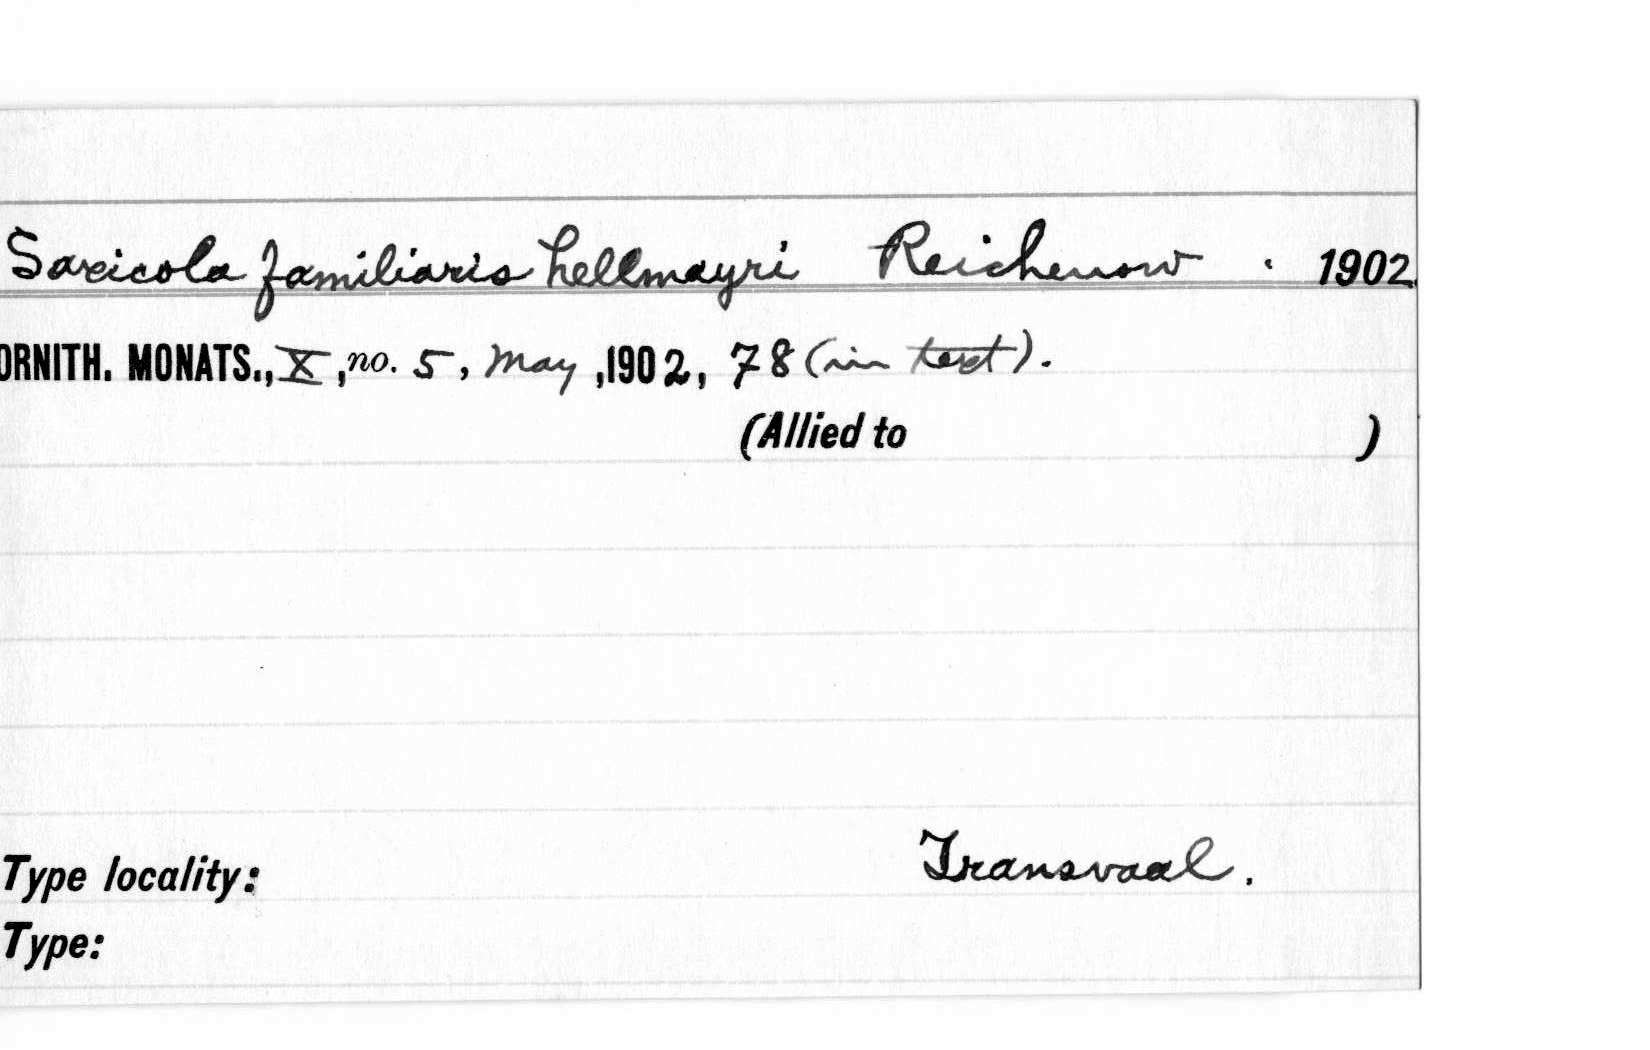 Saxicola familiaris hellmayri Reichenow . 1902.
ORNITH. MONATS., X, no. 5, May, 1902, 78 (in text).
(Allied to )
Type locality: Transvaal.
Type: